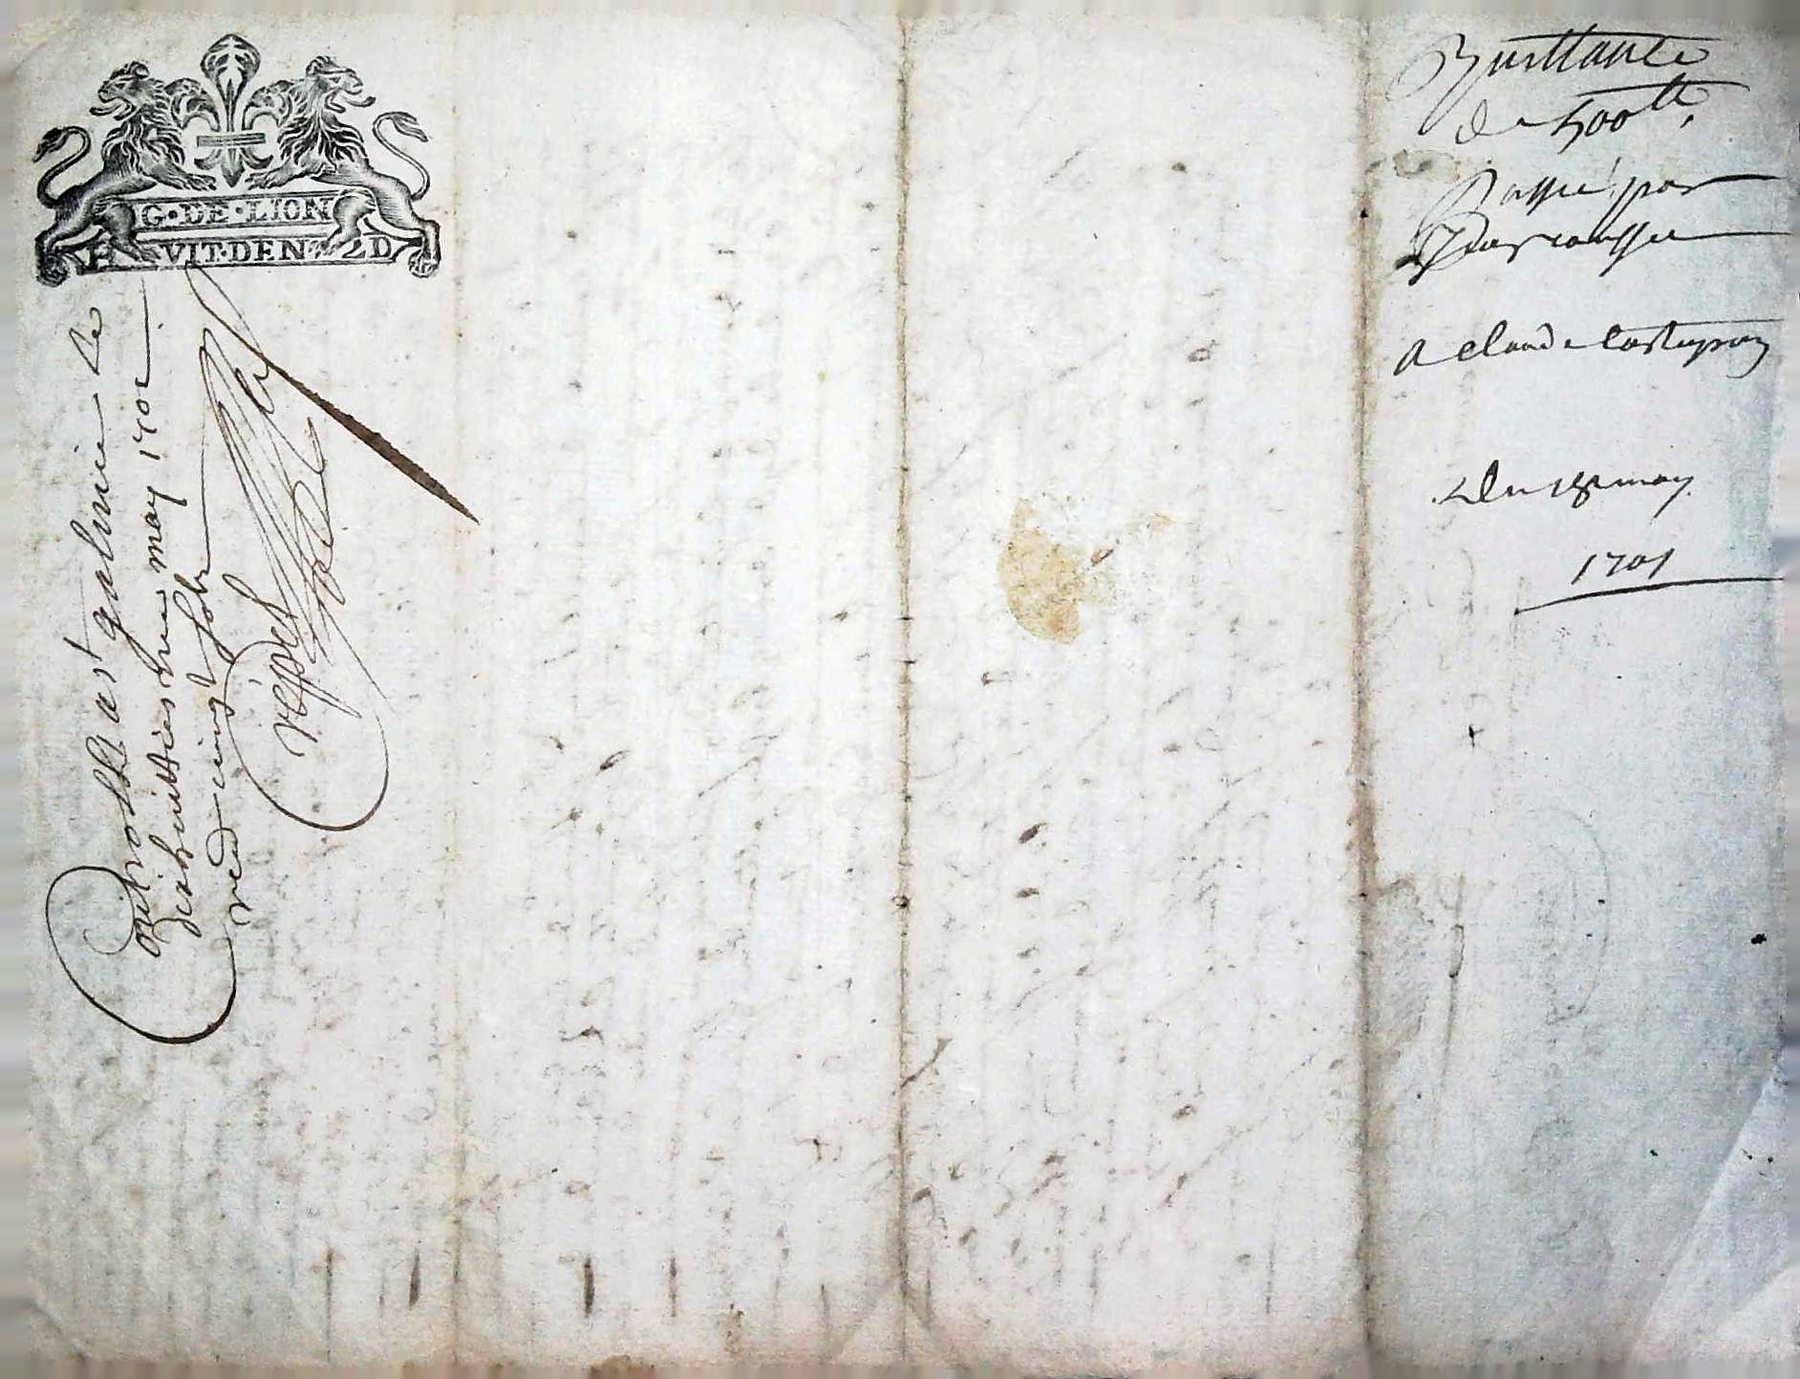 G·DE·LION
HVIT·DEN 2D
Controllé a st galmier le
dixhuittiesme may 1701
reçu cinq sols
Quittance
de 500tt.
Passé par
a claude
du 18e may
1701